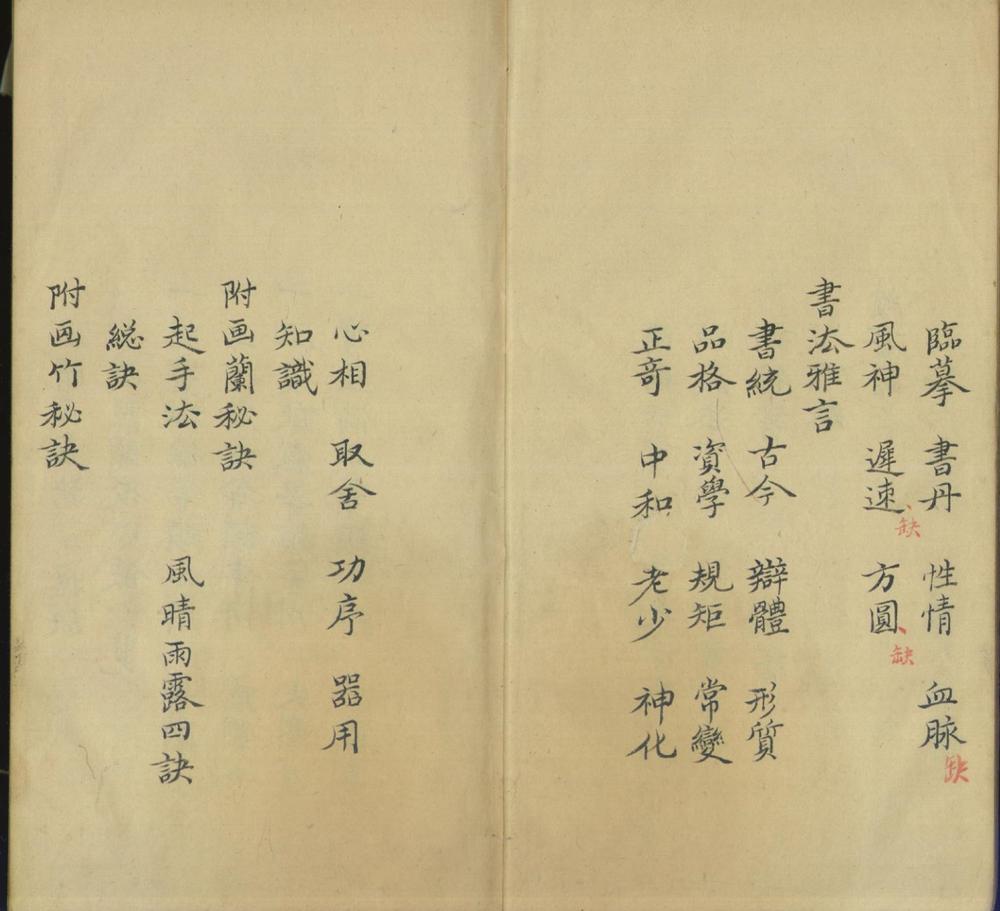 臨摹 書丹 性情 血脉缺
風神 遲速缺 方圓缺
書法雅言
書統 古今 辯體 形質
品格 資學 規矩 常變
正奇 中和 老少 神化
心相 取舍 功序 器用
知識
附画蘭秘訣
起手法 風晴雨露四訣
総訣
附画竹秘訣